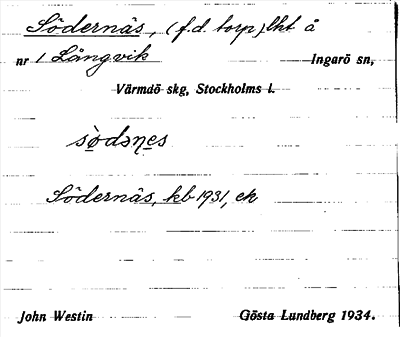 Södernäs, (f.d. torp) lht å
nr 1 Långvik Ingarö sn,
Värmdö skg, Stockholms l.
Södernäs, kb 1931, ek
John Westin Gösta Lundberg 1934.